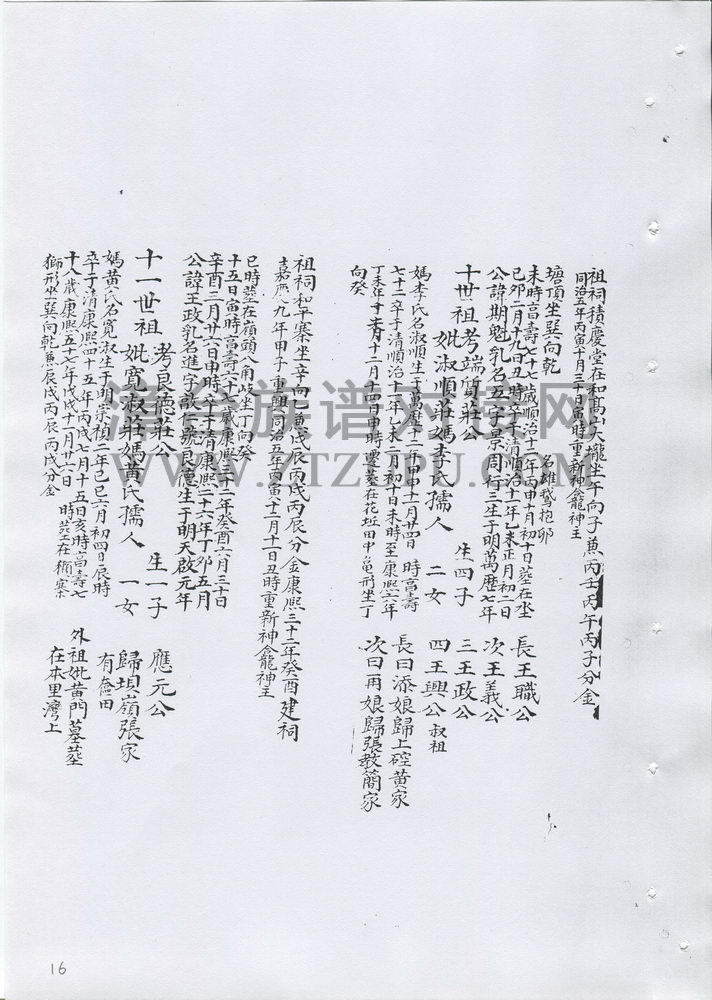 祖祠積慶堂在和髙山大壠坐午向子蕉丙壬丙午丙子分金
同治五年丙寅十月三十日寅時重新神龕龍神主
塘頂坐巽向乾 名雄鵝抱卵
未時髙壽七十七歲順治十二年丙申十月初十日葬在坐
己卯二月十九日丑時卒于清順治十二年乙未正月初二日
公諱期魁乳名五字景周行三生于明萬歷七年
十世祖考端質莊公 生四子
妣淑順莊媽李氏孺人 二女
長王職公
次王義公
三王政公
四王興公叔祖
長曰添娘歸上硿黄家
次曰再娘歸張教簡家
媽李氏名淑順生于萬歷十二年甲申十一月廿四日 時髙壽
七十二卒于清順治十二年乙未二月初十日未時至康熙六年
丁未年十二月十四日申時遷葬在花坵田中亀形坐丁
向癸
祖祠和平寨坐辛向乙蕉戊辰丙戌丙辰分金康熙三十二年癸酉建祠
嘉慶九年甲子重興同治五年丙寅十二月十一日丑時重新神龕龍神主
巳時葬在嶺頭八角岐坐丁向癸
十五日寅時髙壽六十七歲康熙三十二年癸酉六月三十日
辛酉三月廿六日申時卒于清康熙二十六年丁卯五月
公諱王政乳名進字敬仁號良德生于明天啟元年
十一世祖考良德莊公 生一子
妣寬淑莊媽黄氏孺人 一女
應元公
歸垻嶺張家
有奩田
媽黄氏名寛淑生于明崇禎二年己巳六月初四日辰時
卒于清康熙四十五年丙戌七月十五日亥時髙壽七
十八歲康熙五十七年戊戌十一月廿六日 時葬在 寨
獅形坐巽向乾蕉辰戌丙辰丙戌分金
外祖妣黄門墓葬
在本里灣上
清台族谱对接网
WWW.ZTZUPU.COM
16